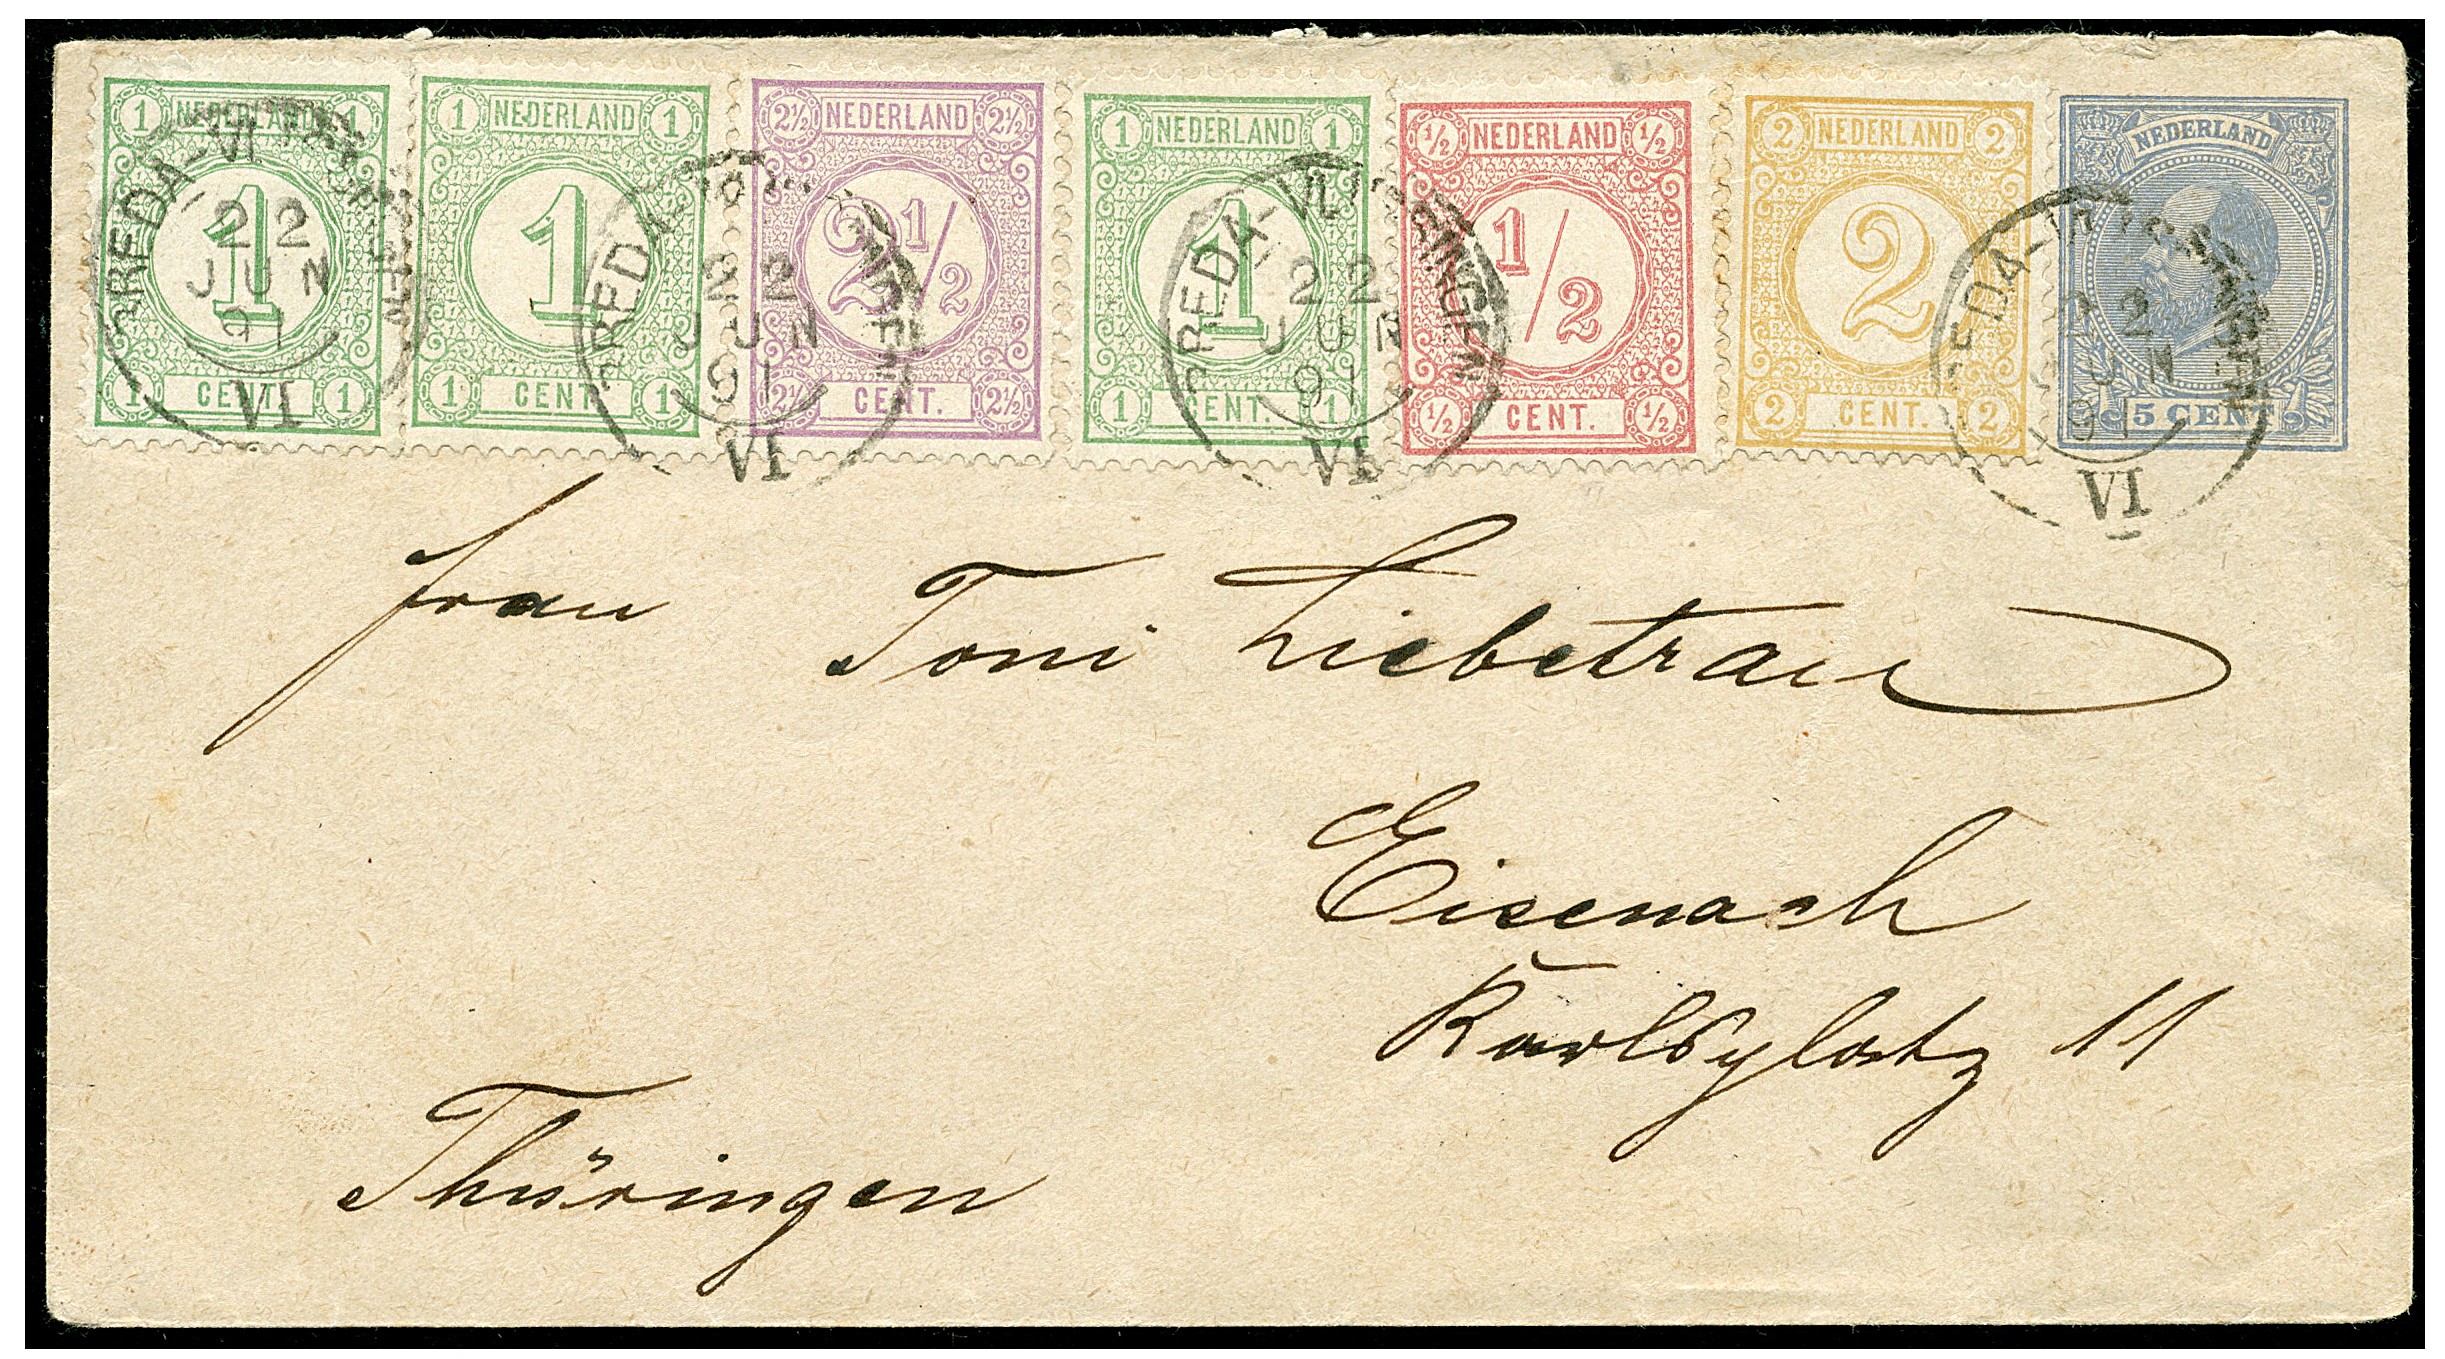 1 NEDERLAND 1
1
1 CENT. 1
1 NEDERLAND 1
1
1 CENT. 1
2½ NEDERLAND 2½
2½
2½ CENT. 2½
1 NEDERLAND 1
1
1 CENT. 1
½ NEDERLAND ½
½
½ CENT. ½
2 NEDERLAND 2
2
2 CENT. 2
NEDERLAND
5 CENT
BREDA-VLISSINGEN
22
JUN
91
VI
BREDA-VLISSINGEN
22
JUN
91
VI
BREDA-VLISSINGEN
22
JUN
91
VI
BREDA-VLISSINGEN
22
JUN
91
VI
Frau Toni Liebetrau
Eisenach
Karlsplatz 11
Thüringen